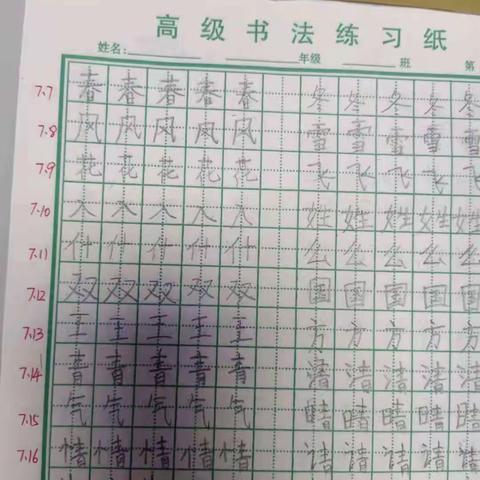 高级书法练习纸
姓名: 年级 班 第
7.7 春 春 春 春 春 冬 冬 冬 冬 冬
7.8 风 风 风 风 风 雪 雪 雪 雪 雪
7.9 花 花 花 花 花 飞 飞 飞 飞 飞
7.10 入 入 入 入 入 姓 姓 姓 姓 姓
7.11 什 什 什 什 什 么 么 么 么 么
7.12 双 双 双 双 双 国 国 国 国 国
7.13 王 王 王 王 王 方 方 方 方 方
7.14 青 青 青 青 青 清 清 清 清
7.15 气 气 气 气 气 晴 晴 晴 晴 晴
7.16 情 情 情 情 情 请 请 请 请